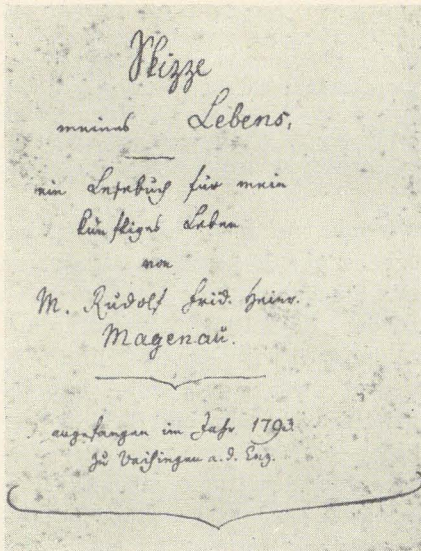 Skizze
meines Lebens,
ein Lesebuch für mein
künftiges Leben
von
M. Rudolf Frid. Heinr.
Magenau.
angefangen im Jahr 1793.
zu Vaihingen a. d. Enz.